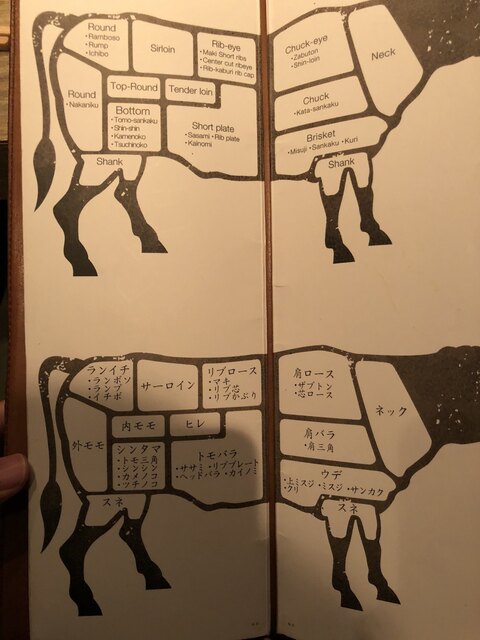 Round
・Ramboso
・Rump
・Ichibo
Sirloin
Rib-eye
・Maki Short ribs
・Center cut ribeye
・Rib-kaburi rib cap
Chuck-eye
・Zabuton
・Shin-loin
Neck
Round
・Nakaniku
Top-Round
Tender loin
Bottom
・Tomo-sankaku
・Shin-shin
・Kamenoko
・Tsuchinoko
Short plate
・Sasami ・Rib plate
・Kainomi
Chuck
・Kata-sankaku
Brisket
・Misuji ・Sankaku ・Kuri
Shank
Shank
ランイチ
・ランボソ
・ランプ
・イチボ
サーロイン
リブロース
・マキ
・リブ芯
・リブかぶり
肩ロース
・ザブトン
・芯ロース
ネック
外モモ
内モモ
ヒレ
シンタマ
・トモ三角
・シンシン
・カメノコ
・ツチノコ
トモバラ
・ササミ ・リブプレート
・ヘッドバラ ・カイノミ
肩バラ
・肩三角
ウデ
・上ミスジ ・ミスジ ・サンカク
・クリ
スネ
スネ